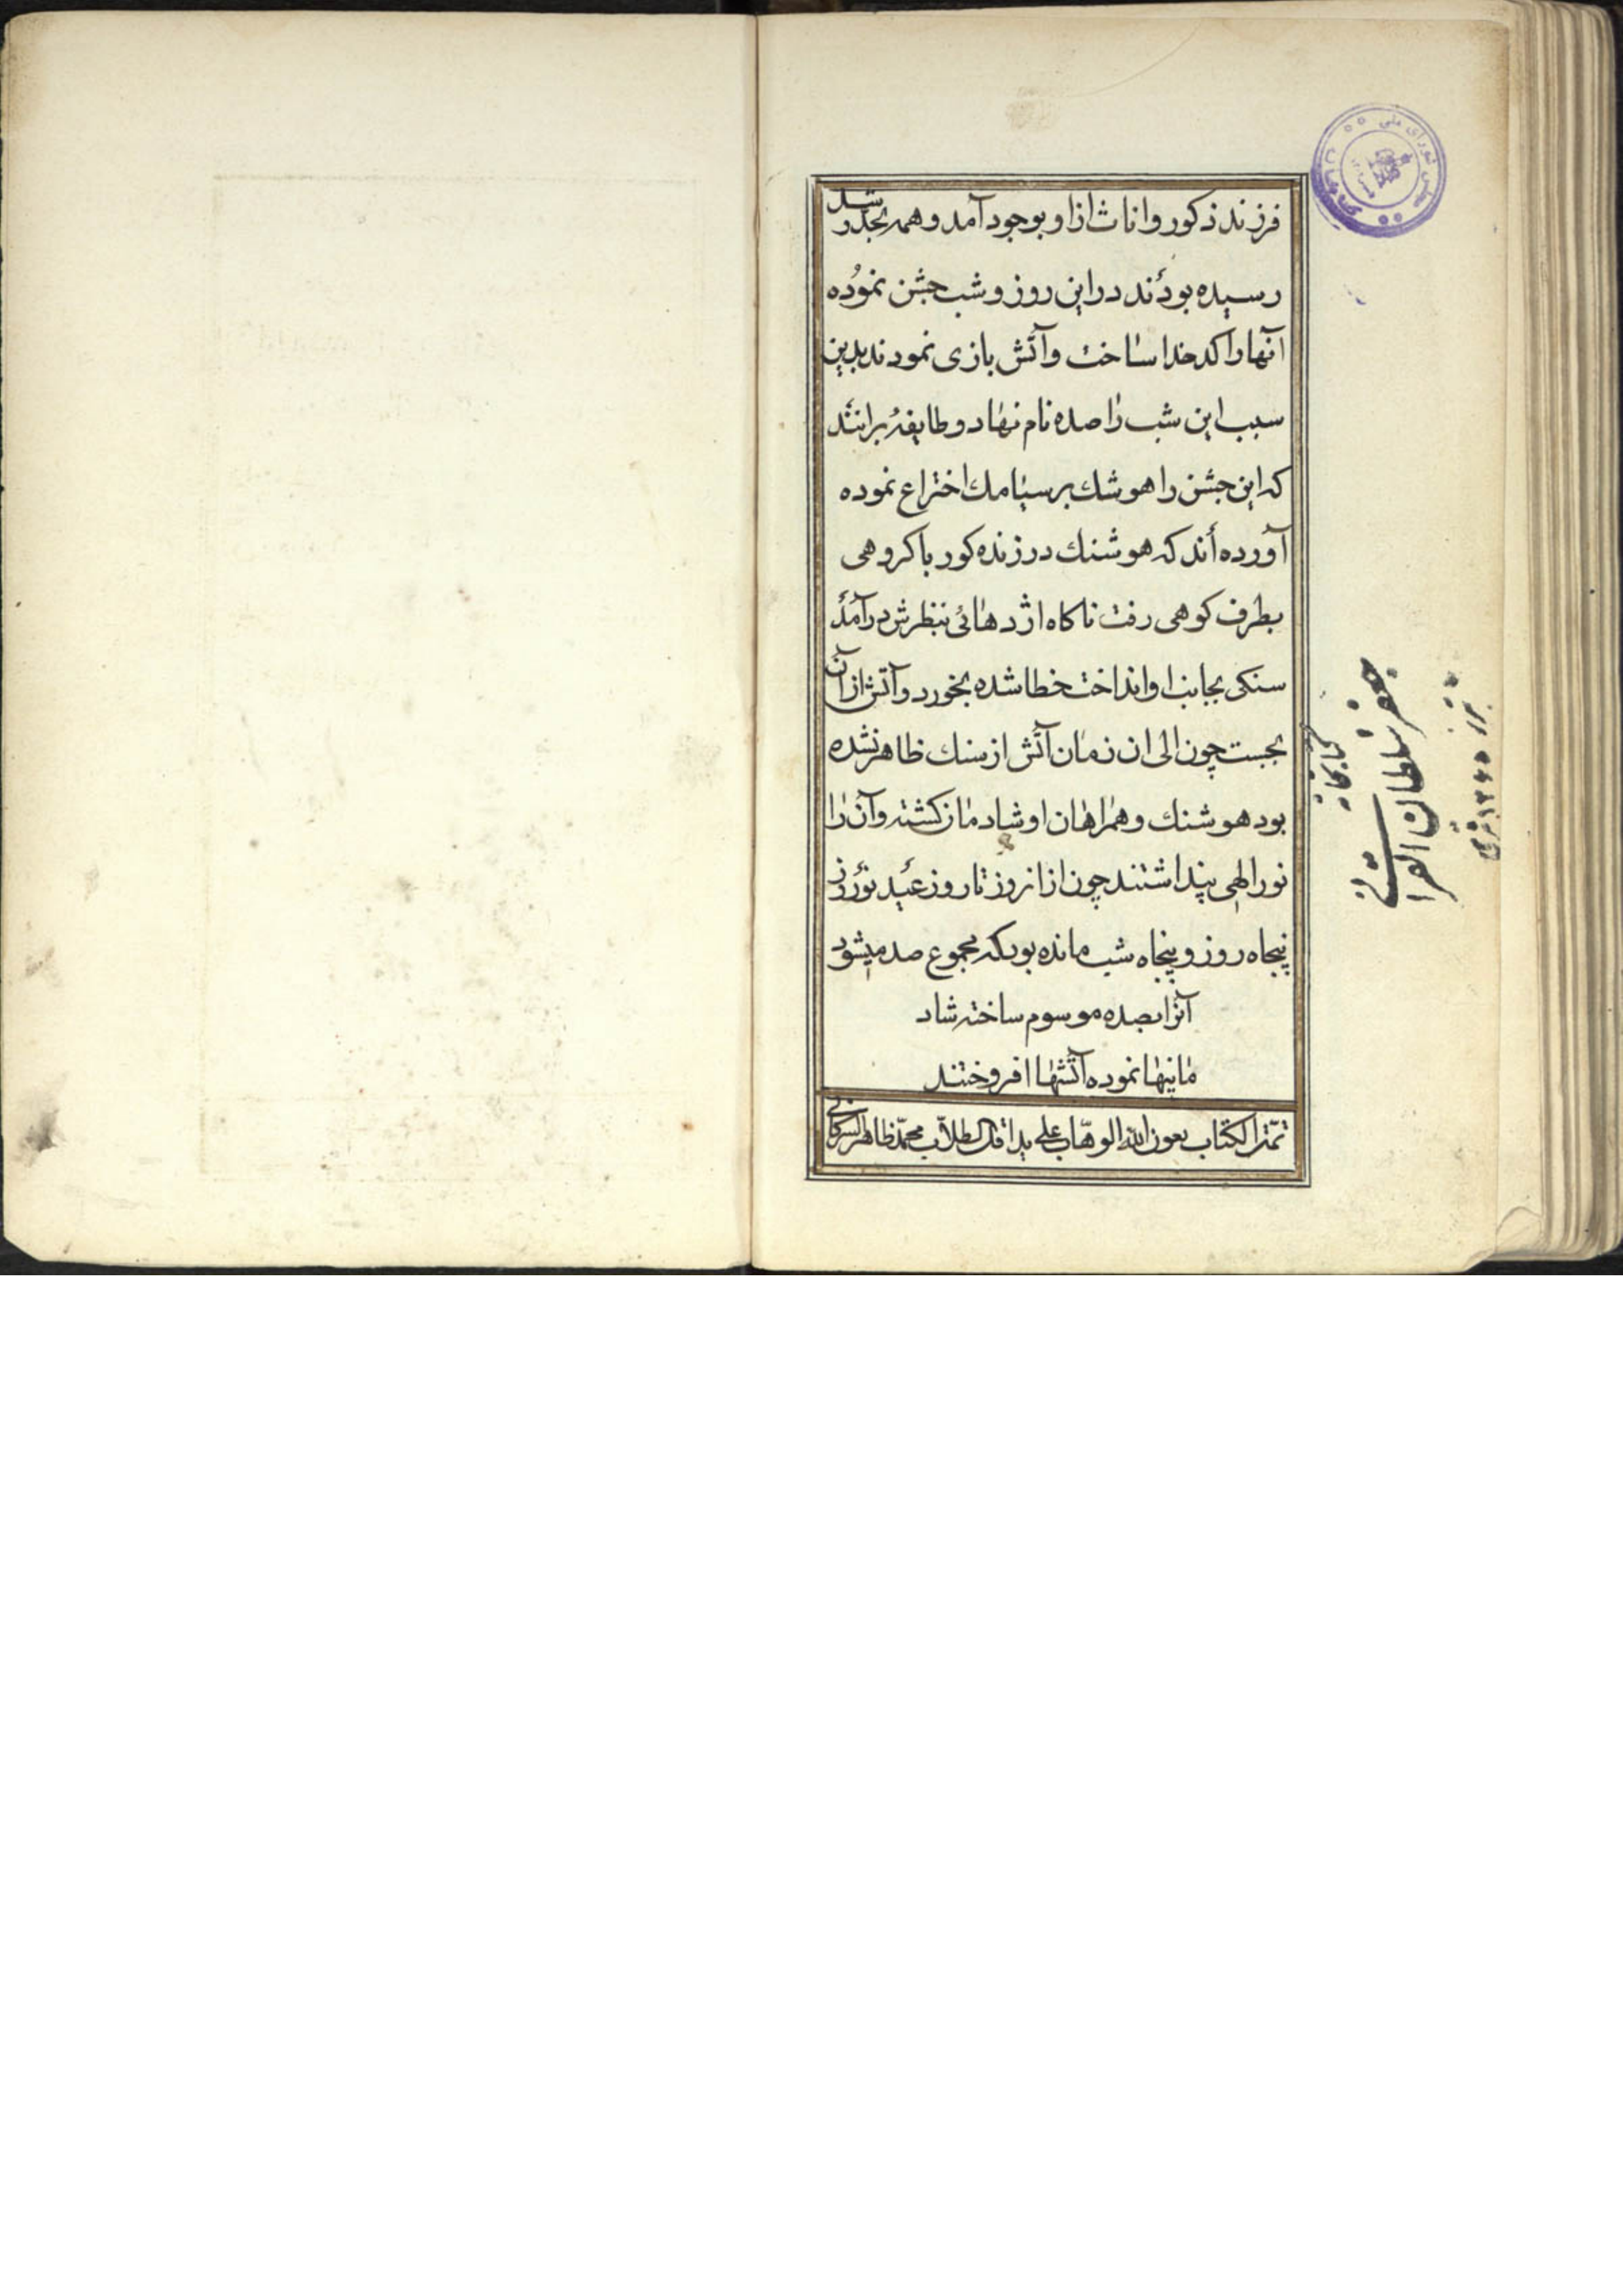 فرزند ذكور واناث ازاو بوجود آمد وهمه بحدّ رشد
رسیده بودند دراین روز وشب جشن نموده
آنهارا كدخدا ساخت وآتش بازی نمودند بدین
سبب این شب را صده نام نهاد وطایفهٔ برانند
كه این جشن را هوشنك بر سیامك اختراع نموده
آورده اند كه هوشنك در زنده كور با كروهی
بطرف كوهی رفت ناكاه اژدهائی بنظرش درآمد
سنكی بجانب او انداخت خطا شده بخورد وآتش از آن
بجست چون الی ان زمان آتش از سنك ظاهر نشده
بود هوشنك وهمراهان او شادمان كشته وآن را
نور الهی پنداشتند چون از انروز تا روز عید نوروز
پنجاه روز وپنجاه شب مانده بود كه مجموع صد میشود
آنرا بصده موسوم ساخته شاد
مانیها نموده آتشها افروختند
تمّت الكتاب بعون الله الوهّاب علی ید اقل الطلاّب محمّد طاهر
كتابخانه
جعفر سلطان القرائی
تبریز ۱۳۶۵ قمری
مجلس شورای ملی